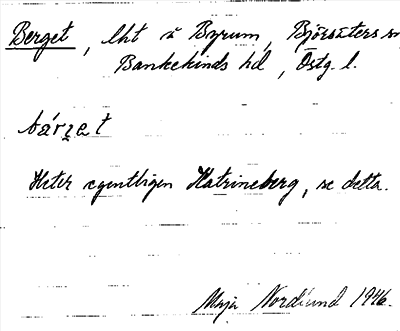 Berget, lht å Byrum, Björsäters sn
Bankekinds hd, Östg. l.
bárzet
Heter egentligen Katrineberg, se detta.
Maja Nordlund 1946.